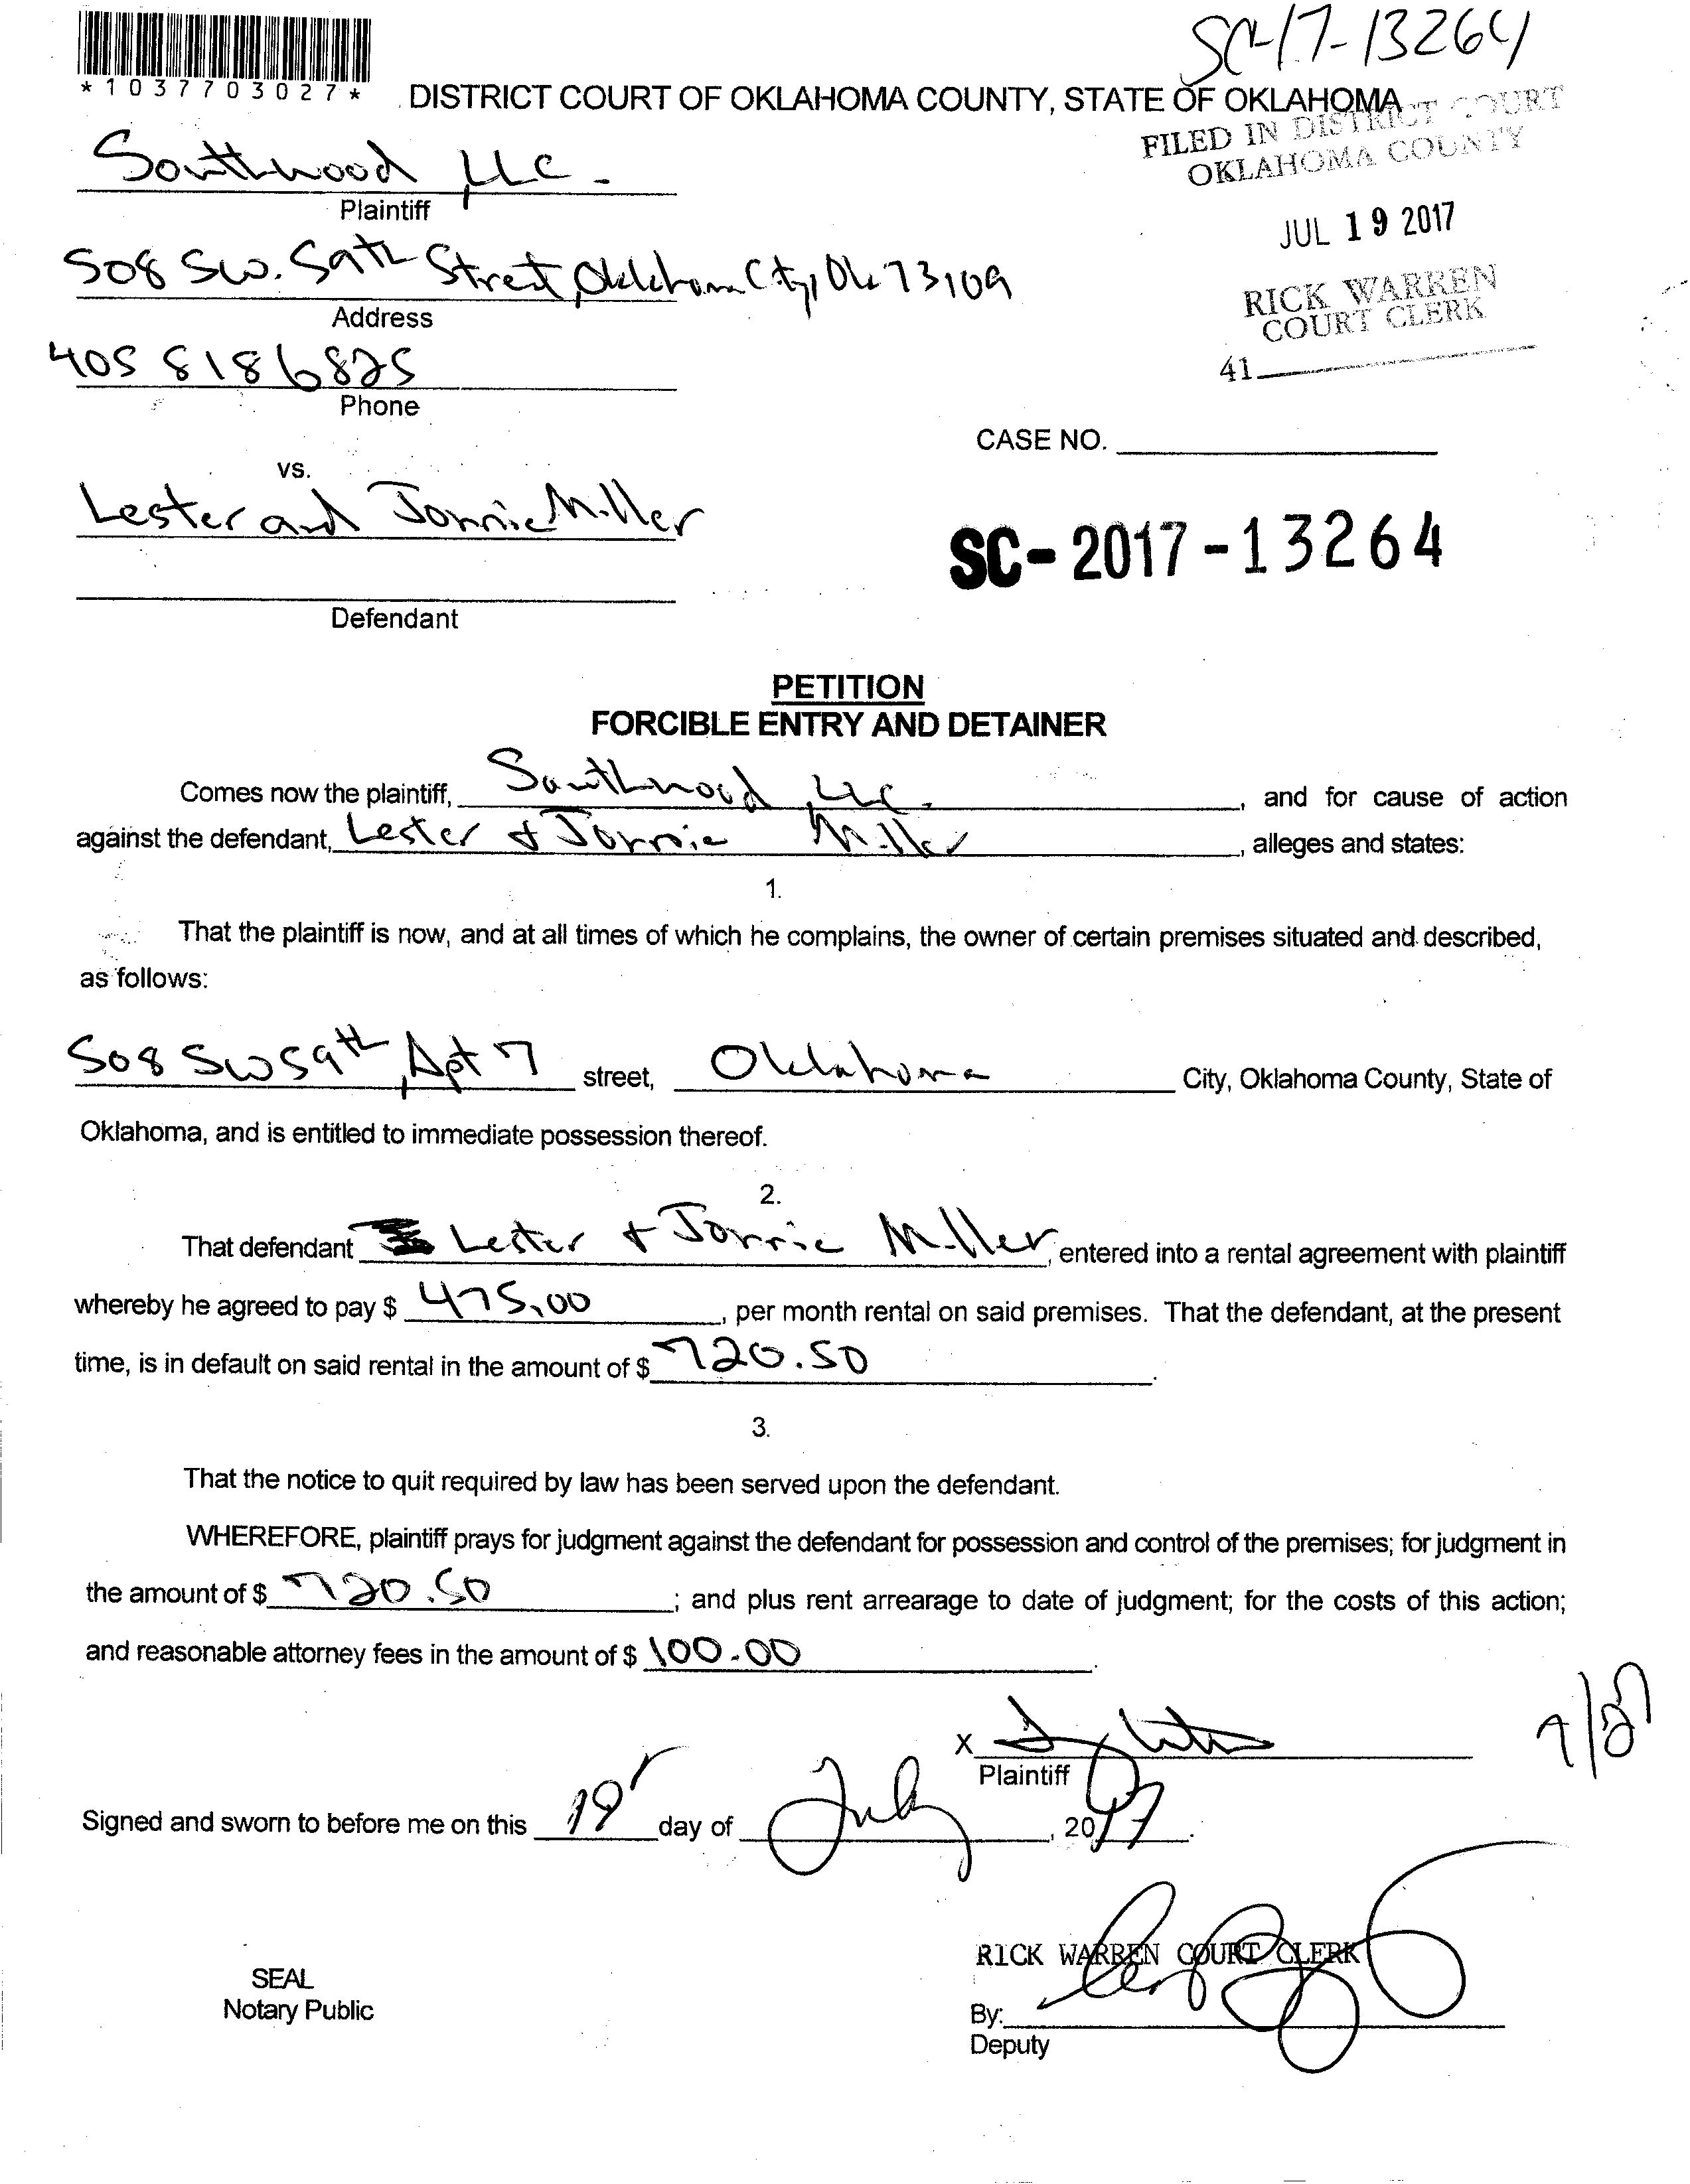 SC-17-13264
*1037703027*
DISTRICT COURT OF OKLAHOMA COUNTY, STATE OF OKLAHOMA
FILED IN DISTRICT COURT
OKLAHOMA COUNTY
JUL 19 2017
RICK WARREN
COURT CLERK
41
Southwood, LLC.
Plaintiff
508 SW. 59th Street, Oklahoma City, Ok 73109
Address
405 8186825
Phone
CASE NO.
vs.
Lester and Jonnie Miller
SC-2017-13264
Defendant
PETITION
FORCIBLE ENTRY AND DETAINER
Comes now the plaintiff, Southwood, LLC., and for cause of action
against the defendant, Lester + Jonnie Miller, alleges and states:
1.
That the plaintiff is now, and at all times of which he complains, the owner of certain premises situated and described,
as follows:
508 SW 59th, Apt 7 street, Oklahoma City, Oklahoma County, State of
Oklahoma, and is entitled to immediate possession thereof.
2.
That defendant Lester + Jonnie Miller, entered into a rental agreement with plaintiff
whereby he agreed to pay $ 475.00, per month rental on said premises. That the defendant, at the present
time, is in default on said rental in the amount of $ 720.50.
3.
That the notice to quit required by law has been served upon the defendant.
WHEREFORE, plaintiff prays for judgment against the defendant for possession and control of the premises; for judgment in
the amount of $ 720.50; and plus rent arrearage to date of judgment; for the costs of this action;
and reasonable attorney fees in the amount of $ 100.00.
7/27
X
Plaintiff
Signed and sworn to before me on this 19 day of July, 2017.
RICK WARREN COURT CLERK
SEAL
Notary Public
By:
Deputy